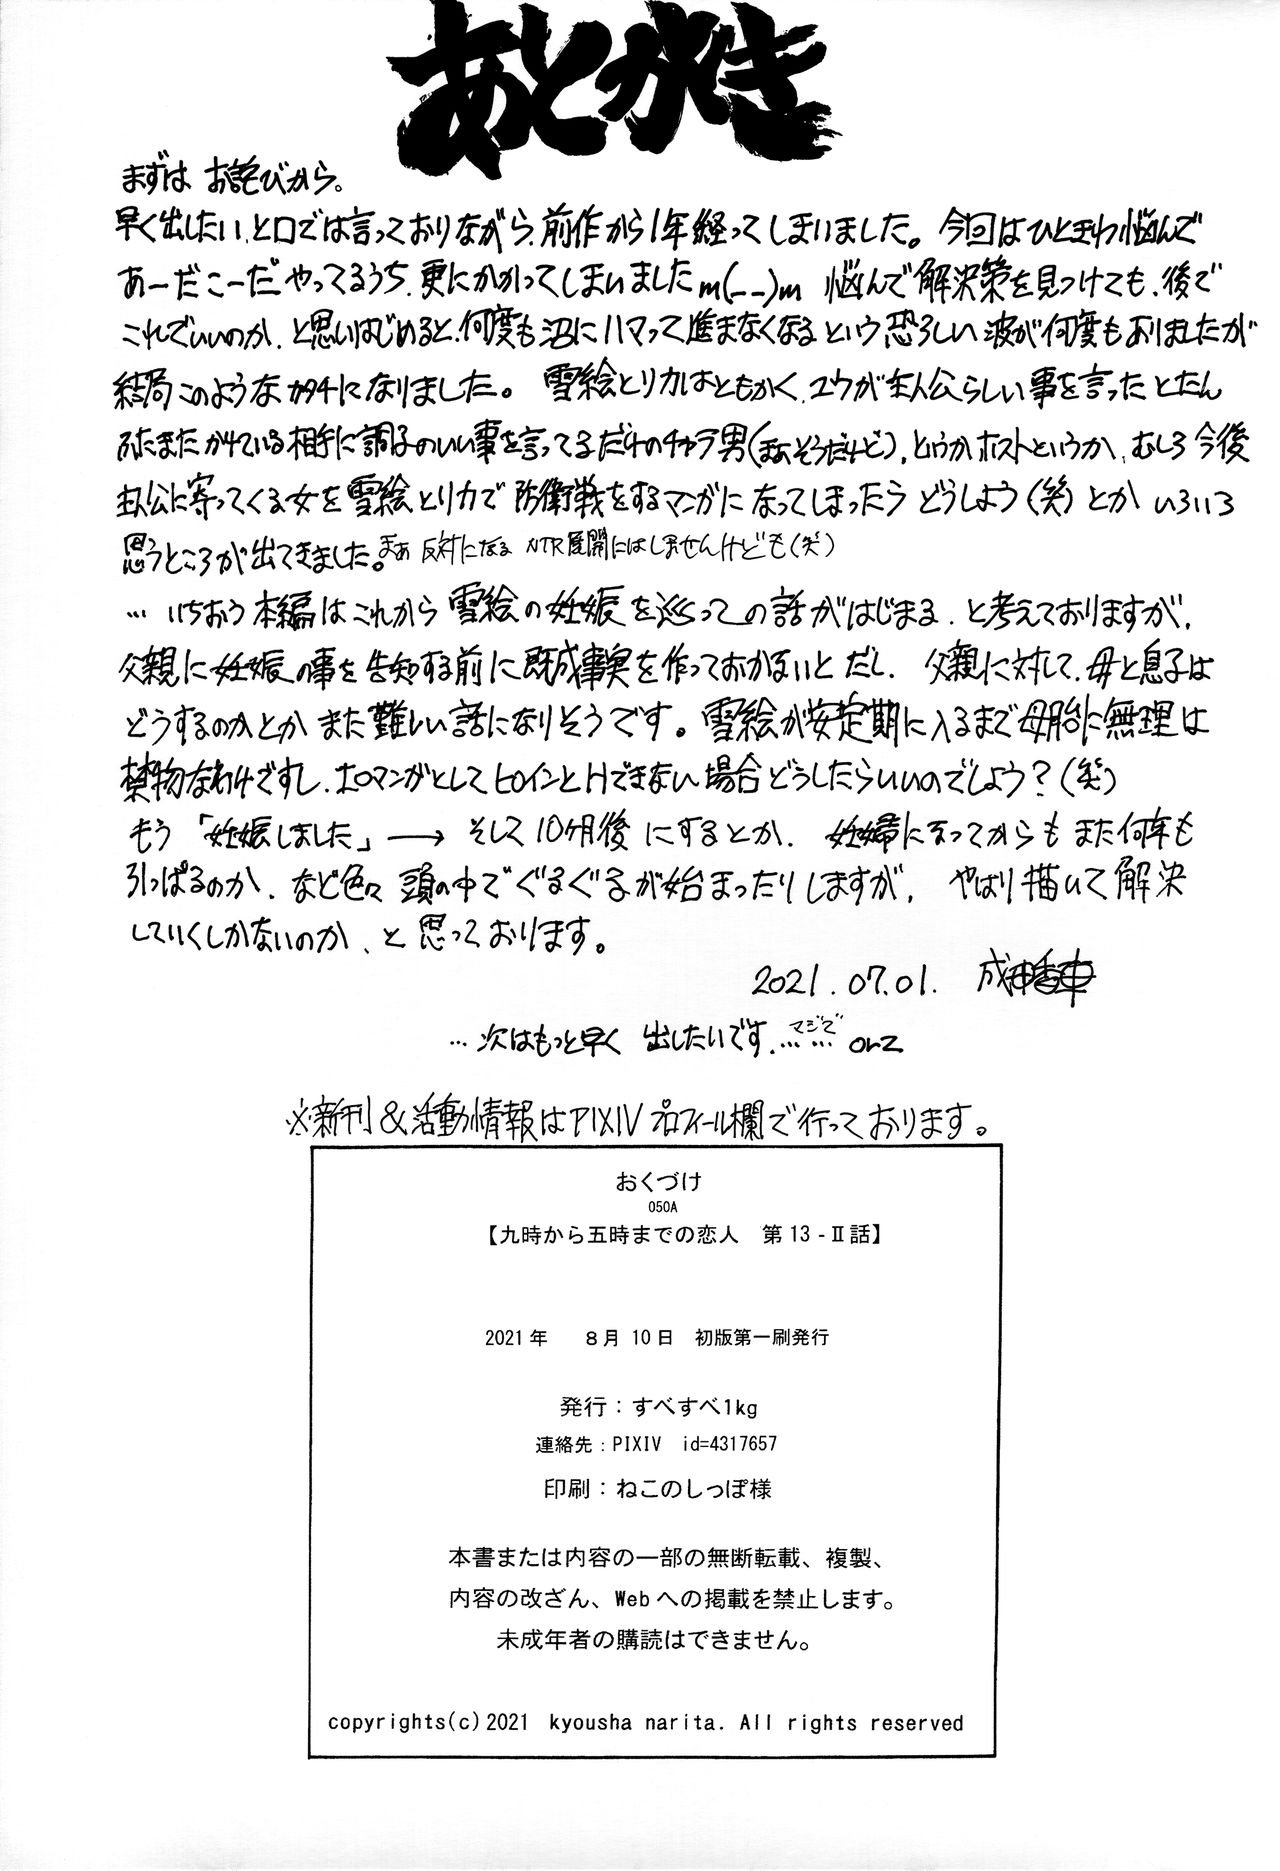 あとがき
まずは お詫びから。
早く出したい、と口では言っておりながら、前作から1年経ってしまいました。今回はひときわ悩んで
あーだこーだやってるうち、更にかかってしまいましたm(_ _)m 悩んで解決策を見つけても、後で
これでいいのか、と思いはじめると、何度も沼にハマって進まなくなるという恐ろしい波が何度もありましたが
結局このようなカタチになりました。 雪絵とリカはともかく、ユウが主人公らしい事を言ったとたん
ふたまたかけている相手に調子のいい事を言ってるだけのチャラ男(まあそうだけど)、というかホストというか、むしろ今後
主人公に寄ってくる女を雪絵とリカで防衛戦をするマンガになってしまったらどうしよう(笑)とかいろいろ
思うところが出てきました。まぁ反対になるNTR展開にはしませんけども(笑)
…いちおう本編はこれから雪絵の妊娠を巡っての話がはじまる、と考えておりますが、
父親に妊娠の事を告知する前に既成事実を作っておかないとだし、父親に対して、母と息子は
どうするのかとかまた難しい話になりそうです。雪絵が安定期に入るまで母胎に無理は
禁物なわけですし、エロマンガとしてヒロインとHできない場合どうしたらいいのでしょう?(笑)
もう「妊娠しました」→そして10ヶ月後にするとか、妊婦になってからもまた何年も
引っぱるのか、など色々頭の中でぐるぐるが始まったりしますが、やはり描いて解決
していくしかないのか、と思っております。
2021.07.01. 成田香車
…次はもっと早く 出したいです、マジで…… orz
※新刊&活動情報はPIXIVプロフィール欄で行っております。
おくづけ
050A
【九時から五時までの恋人 第13-Ⅱ話】
2021年 8月10日 初版第一刷発行
発行:すべすべ1kg
連絡先:PIXIV id=4317657
印刷:ねこのしっぽ様
本書または内容の一部の無断転載、複製、
内容の改ざん、Webへの掲載を禁止します。
未成年者の購読はできません。
copyrights(c)2021 kyousha narita. All rights reserved